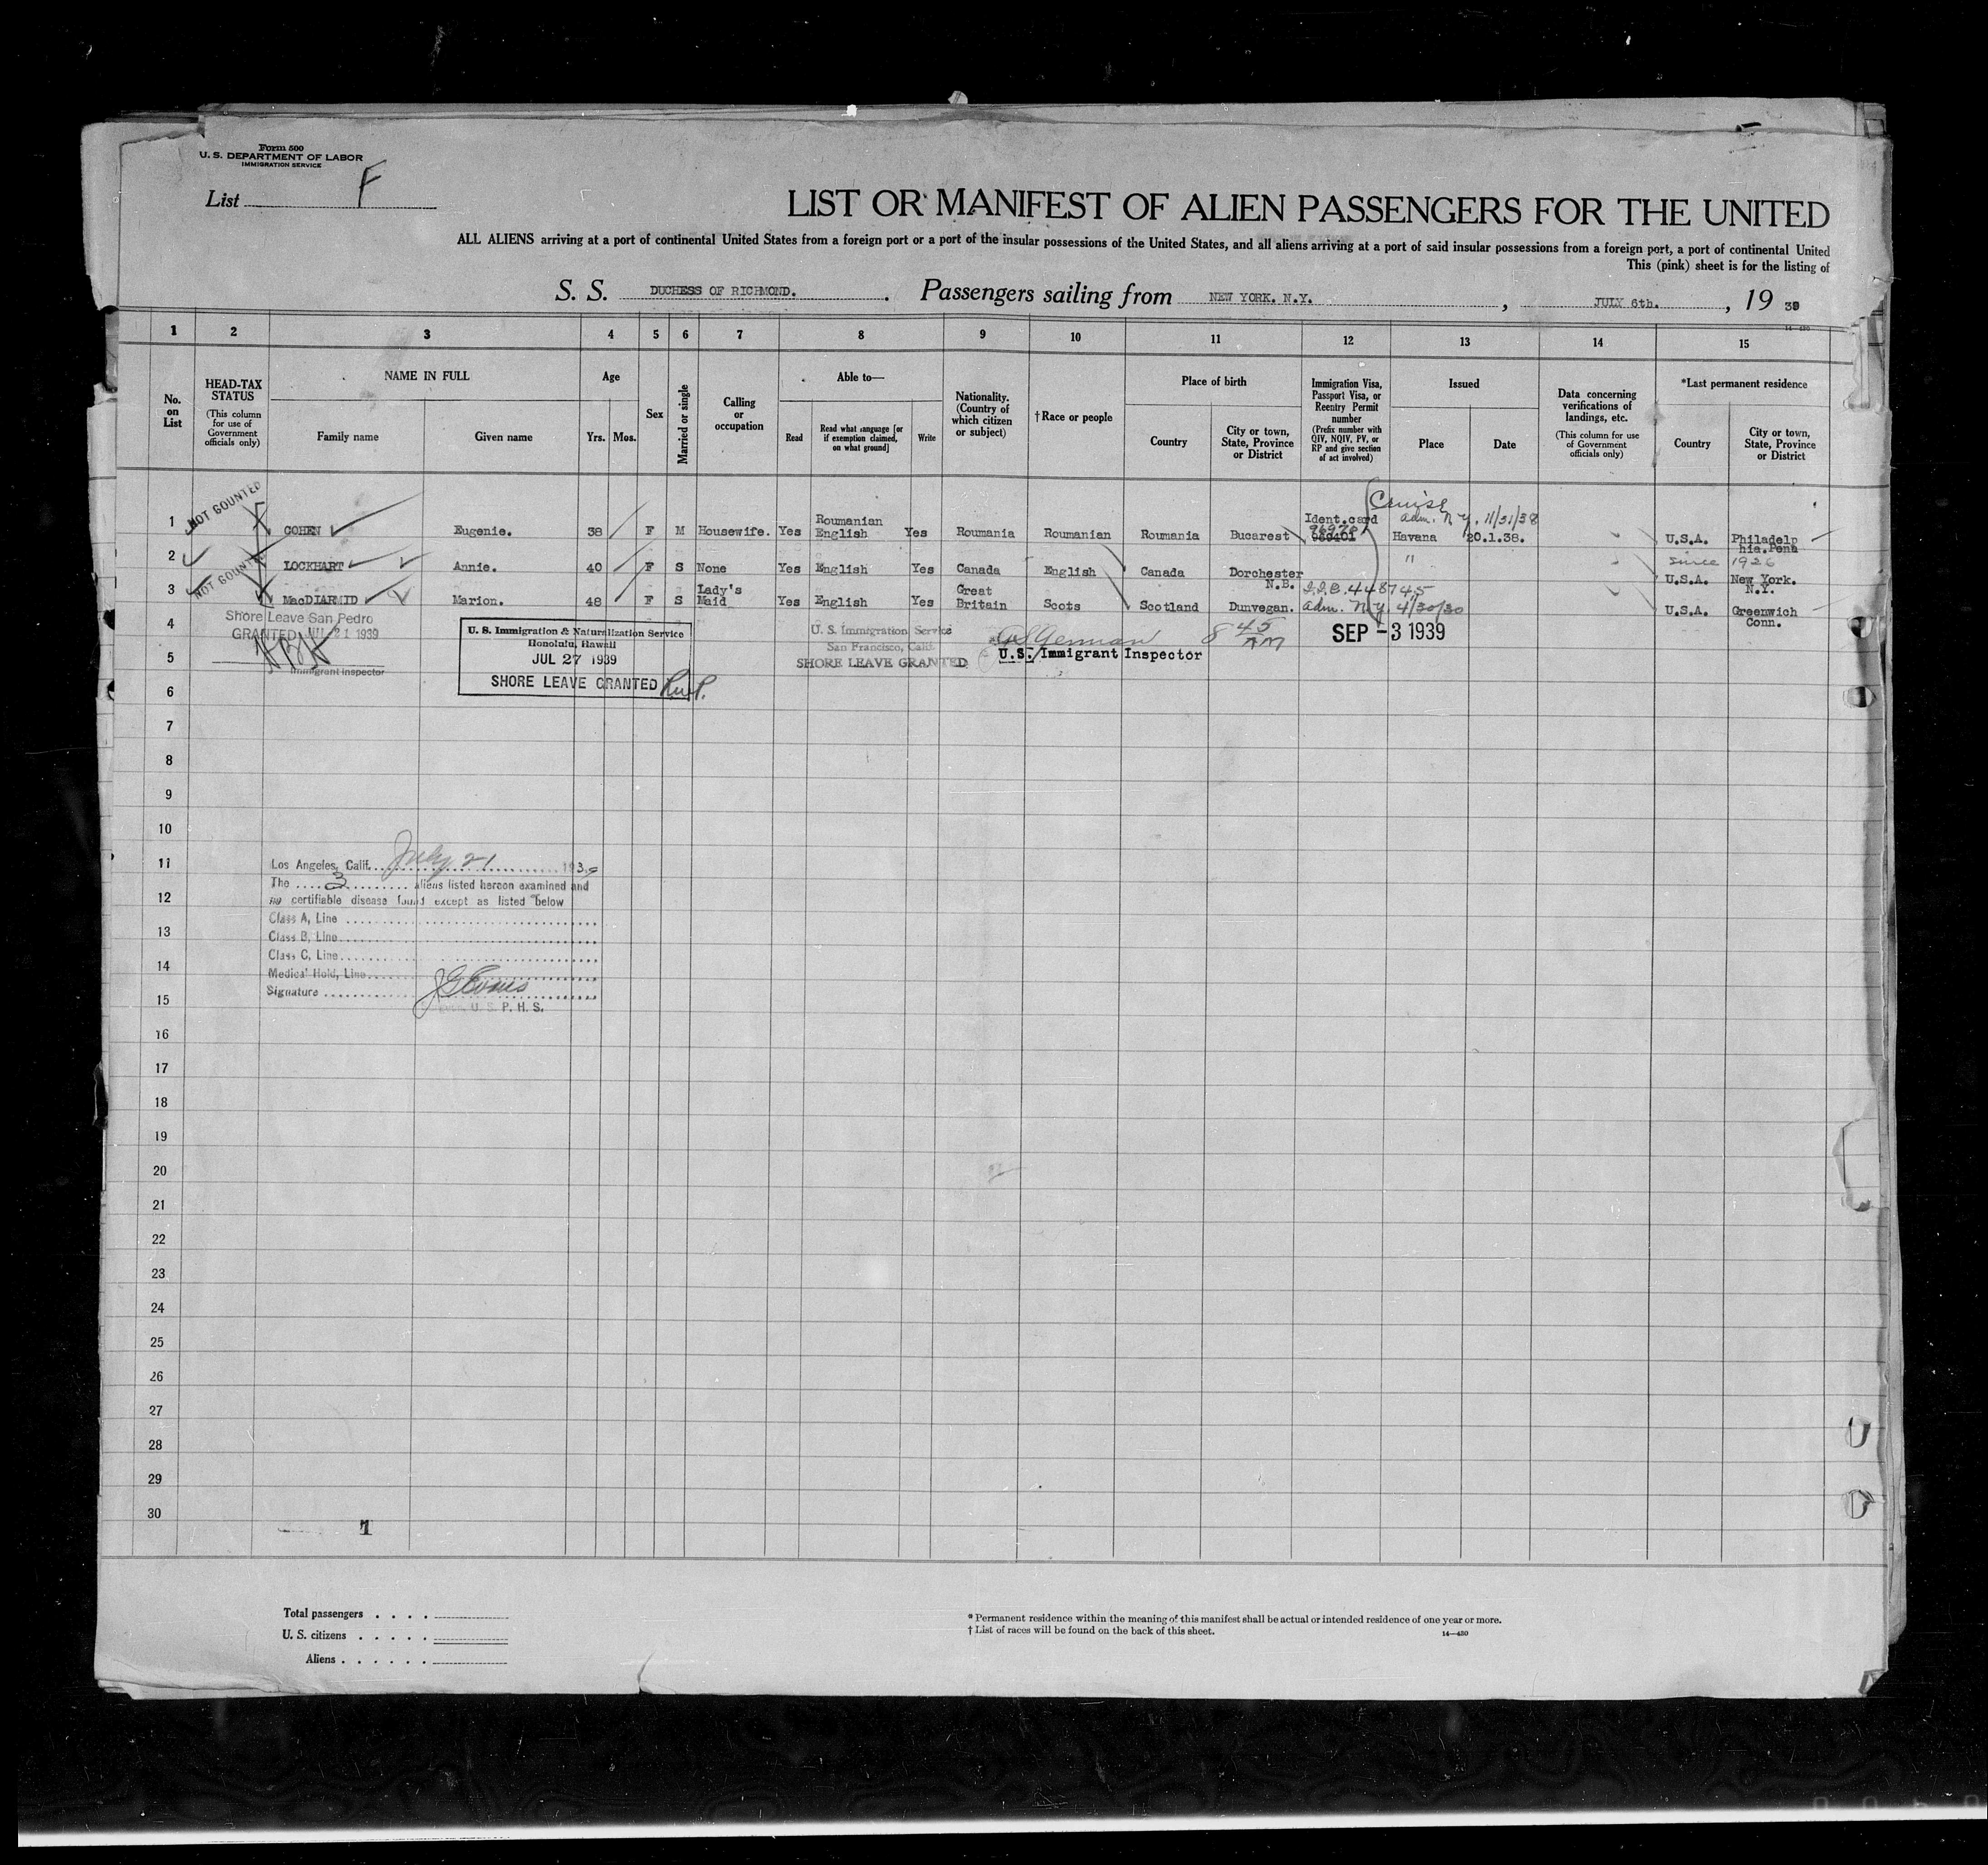 Form 500
U. S. DEPARTMENT OF LABOR
IMMIGRATION SERVICE
List F
LIST OR MANIFEST OF ALIEN PASSENGERS FOR THE UNITED
ALL ALIENS arriving at a port of continental United States from a foreign port or a port of the insular possessions of the United States, and all aliens arriving at a port of said insular possessions from a foreign port, a port of continental United
This (pink) sheet is for the listing of
S. S. DUCHESS OF RICHMOND. Passengers sailing from NEW YORK. N.Y. , JULY 6th. , 19 39
14-430
1 2 3 4 5 6 7 8 9 10 11 12 13 14 15
No. on List
HEAD-TAX STATUS
(This column for use of Government officials only)
NAME IN FULL
Family name
Given name
Age
Yrs. Mos.
Sex
Married or single
Calling or occupation
Able to—
Read
Read what language [or if exemption claimed, on what ground]
Write
Nationality. (Country of which citizen or subject)
†Race or people
Place of birth
Country
City or town, State, Province or District
Immigration Visa, Passport Visa, or Reentry Permit number
(Prefix number with QIV, NQIV, PV, or RP and give section of act involved)
Issued
Place
Date
Data concerning verifications of landings, etc.
(This column for use of Government officials only)
*Last permanent residence
Country
City or town, State, Province or District
NOT COUNTED
Cruise
1 COHEN Eugenie. 38 F M Housewife. Yes Roumanian English Yes Roumania Roumanian Roumania Bucarest Ident.card adm. N.Y. 11/31/38
Havana 20.1.38. U.S.A. Philadelp hia.Penn
since 1926
2 LOCKHART Annie. 40 F S None Yes English Yes Canada English Canada Dorchester N.B. " U.S.A. New York. N.Y.
NOT COUNTED
3 MacDIARMID Marion. 48 F S Lady's Maid Yes English Yes Great Britain Scots Scotland Dunvegan. 448745 adm. N.Y. 4/30/30 U.S.A. Greenwich Conn.
4
Shore Leave San Pedro
GRANTED JUL 21 1939
Immigrant Inspector
U. S. Immigration & Naturalization Service
Honolulu, Hawaii
JUL 27 1939
SHORE LEAVE GRANTED
U. S. Immigration Service
San Francisco, Calif.
SHORE LEAVE GRANTED
8 45 AM
U.S. Immigrant Inspector
SEP -3 1939
5
6
7
8
9
10
11
Los Angeles, Calif. July 21 1939
The 3 aliens listed hereon examined and
no certifiable disease found except as listed below
12
Class A, Line
13
Class B, Line
Class C, Line
14
Medical Hold, Line
Signature
15
U. S. P. H. S.
16
17
18
19
20
21
22
23
24
25
26
27
28
29
30
Total passengers
U. S. citizens
Aliens
* Permanent residence within the meaning of this manifest shall be actual or intended residence of one year or more.
† List of races will be found on the back of this sheet.
14—430